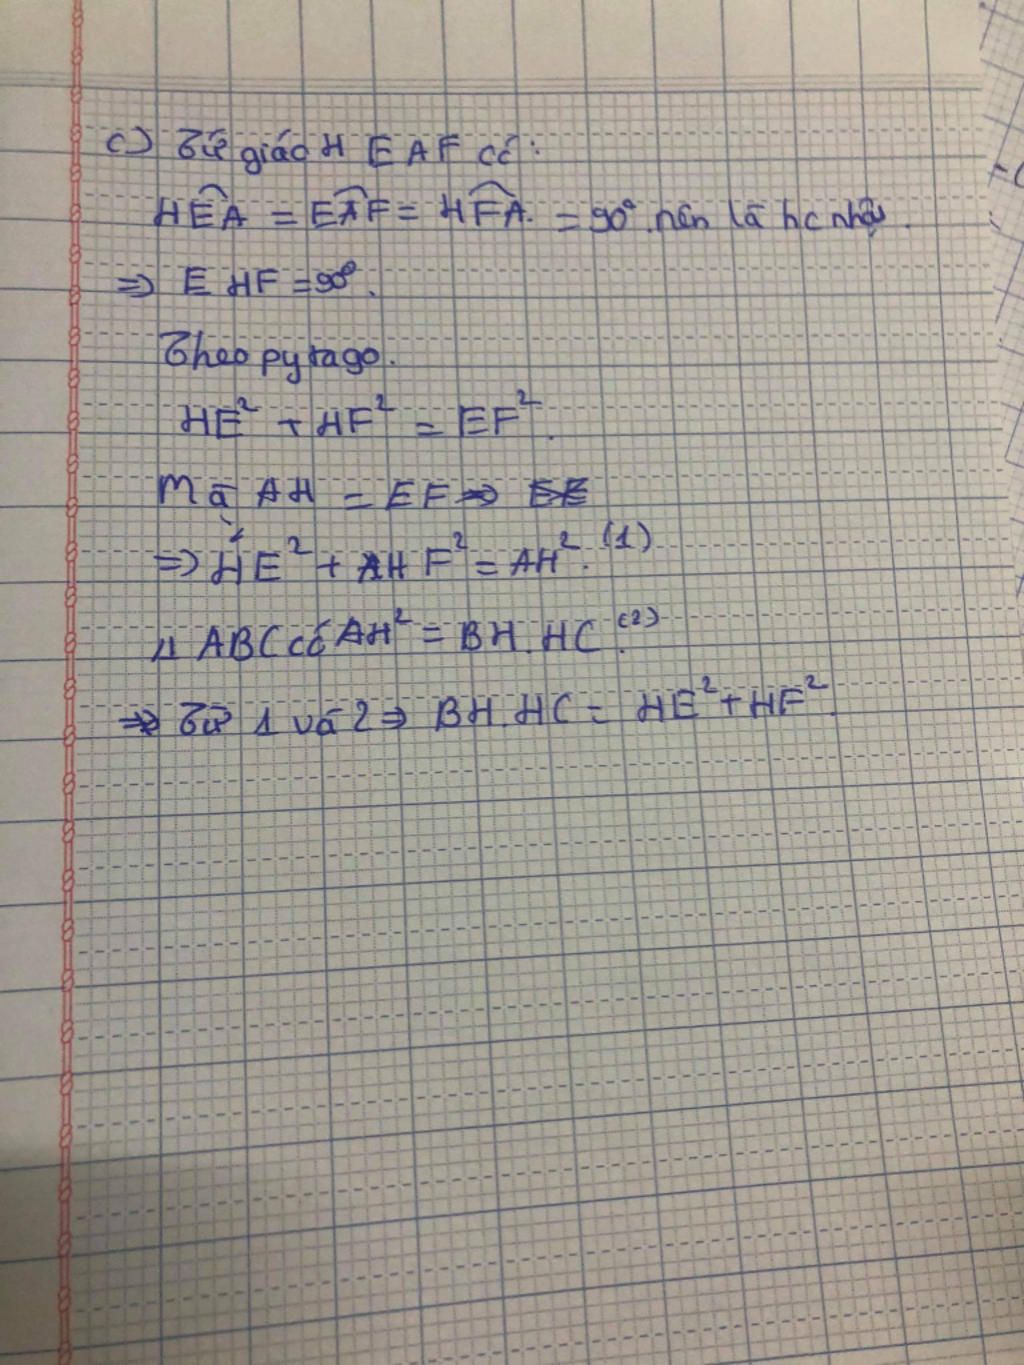 c) Tứ giác H E A F có:
HÊA = EÂF = HF̂A. = 90° nên là hc nhật.
⇒ E HF = 90°.
Theo pytago.
HE² + HF² = EF².
Mà AH = EF ⇒
⇒ HE² + HF² = AH². (1)
Δ ABC có AH² = BH.HC. (2)
⇒ Từ 1 và 2 ⇒ BH.HC = HE² + HF².